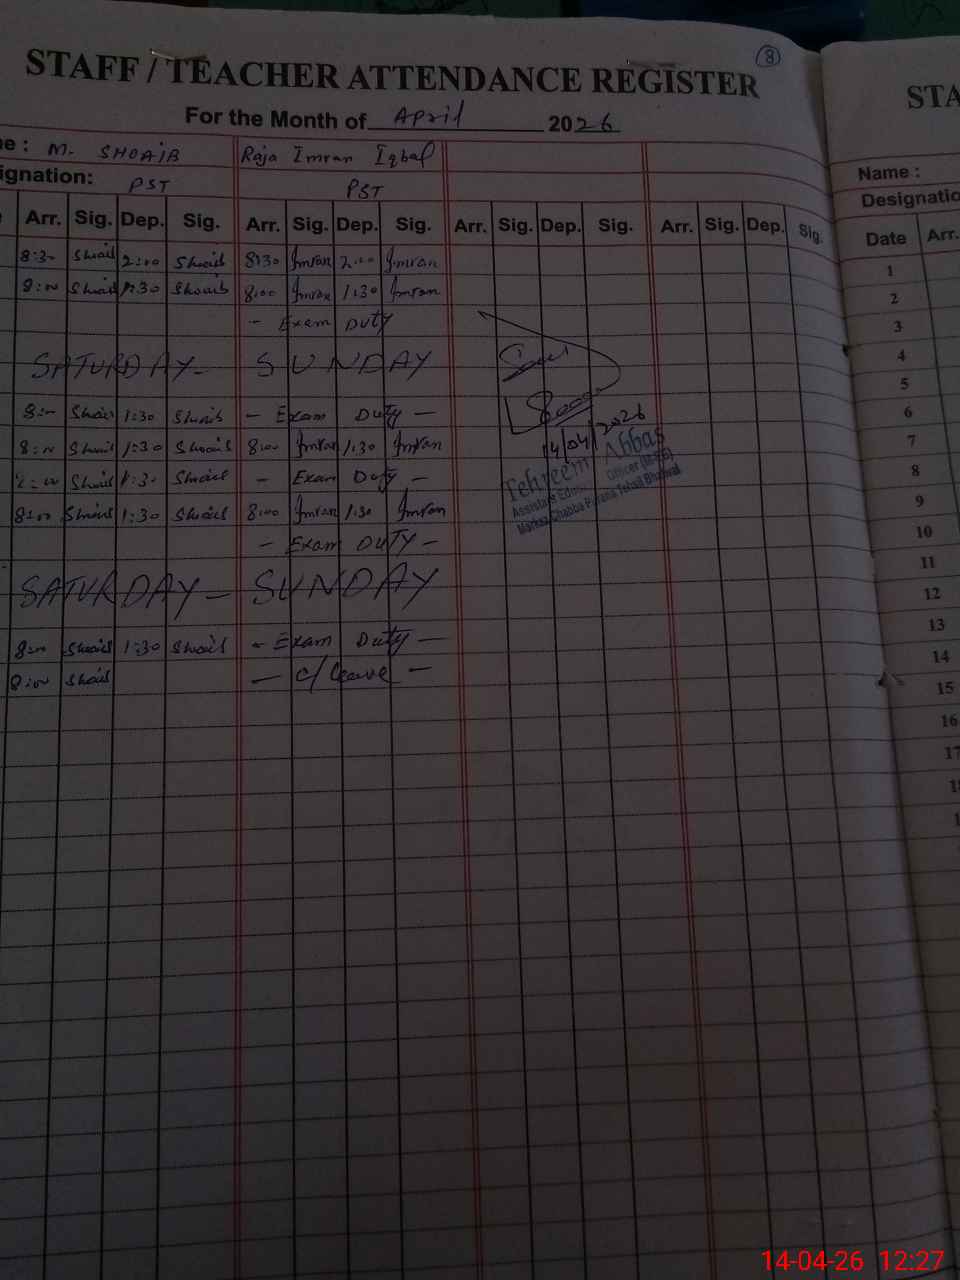 8
STAFF / TEACHER ATTENDANCE REGISTER
For the Month of April 2026
e : M. SHOAIB Raja Imran Iqbal
ignation: PST PST
Arr. Sig. Dep. Sig. Arr. Sig. Dep. Sig. Arr. Sig. Dep. Sig. Arr. Sig. Dep. Sig.
8:30 Shoaib 2:00 Shoaib 8:30 Imran 2:00 Imran
8:00 Shoaib 1:30 Shoaib 8:00 Imran 1:30 Imran
- Exam Duty
SATURDAY - SUNDAY
8:00 Shoaib 1:30 Shoaib - Exam Duty -
8:00 Shoaib 1:30 Shoaib 8:00 Imran 1:30 Imran
8:00 Shoaib 1:30 Shoaib - Exam Duty -
8:00 Shoaib 1:30 Shoaib 8:00 Imran 1:30 Imran
- Exam DUTY -
SATURDAY - SUNDAY
8:00 Shoaib 1:30 Shoaib - Exam Duty -
8:00 Shoaib - c/ leave -
14/04/2026
Tehreem Abbas
Assistant Officer
Markaz Chabba Purana Tehsil
STA
Name :
Designatio
Date Arr.
1
2
3
4
5
6
7
8
9
10
11
12
13
14
15
16
17
14-04-26 12:27